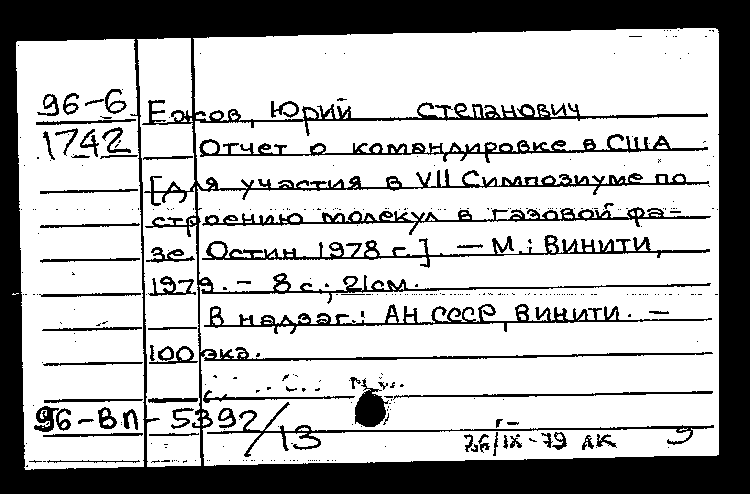 96-6 Ежов, Юрий Степанович
1742 Отчет о командировке в США
[для участия в VII Симпозиуме по
строению молекул в газовой фа-
зе. Остин. 1978 г.]. — М.: ВИНИТИ,
1979. - 8 с.; 21см.
В надзаг.: АН СССР, ВИНИТИ. —
100 экз.
96-ВП-5392/13
26/IX-79 АК